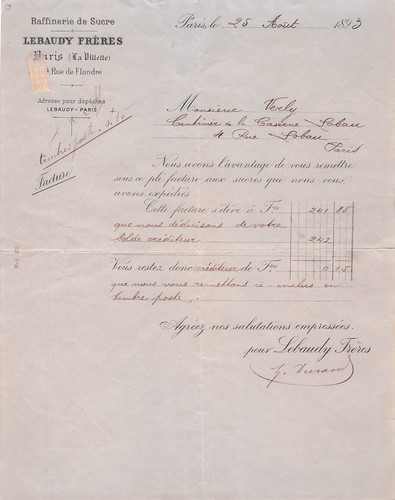 Raffinerie de Sucre
LEBAUDY FRÈRES
Paris (La Villette)
Rue de Flandre
Adresse pour dépêches
LEBAUDY-PARIS
timbre poste 0.15
Facture
Paris, le 25 Août 1893
Monsieur Verly
Cantinier de la Caserne Lobau
4 Rue Lobau
Paris
Nous avons l'avantage de vous remettre
sous ce pli facture aux sucres que nous vous
avons expédiés
Cette facture s'élève à Frs 241 85
que nous déduisons de votre
solde créditeur 242
Vous restez donc créditeur de Frs 0 15
que nous vous remettons ci-inclus en
timbre poste.
Agréez nos salutations empressées.
pour Lebaudy Frères